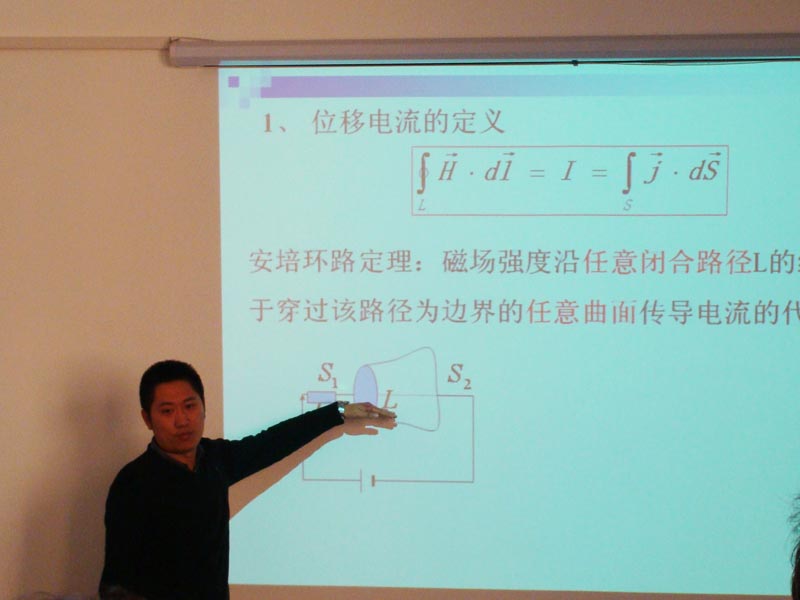 1、 位移电流的定义
∮_L H⃗ · dl⃗ = I = ∫_S j⃗ · dS⃗
安培环路定理：磁场强度沿任意闭合路径L的
于穿过该路径为边界的任意曲面传导电流的代
S₁ S₂
L